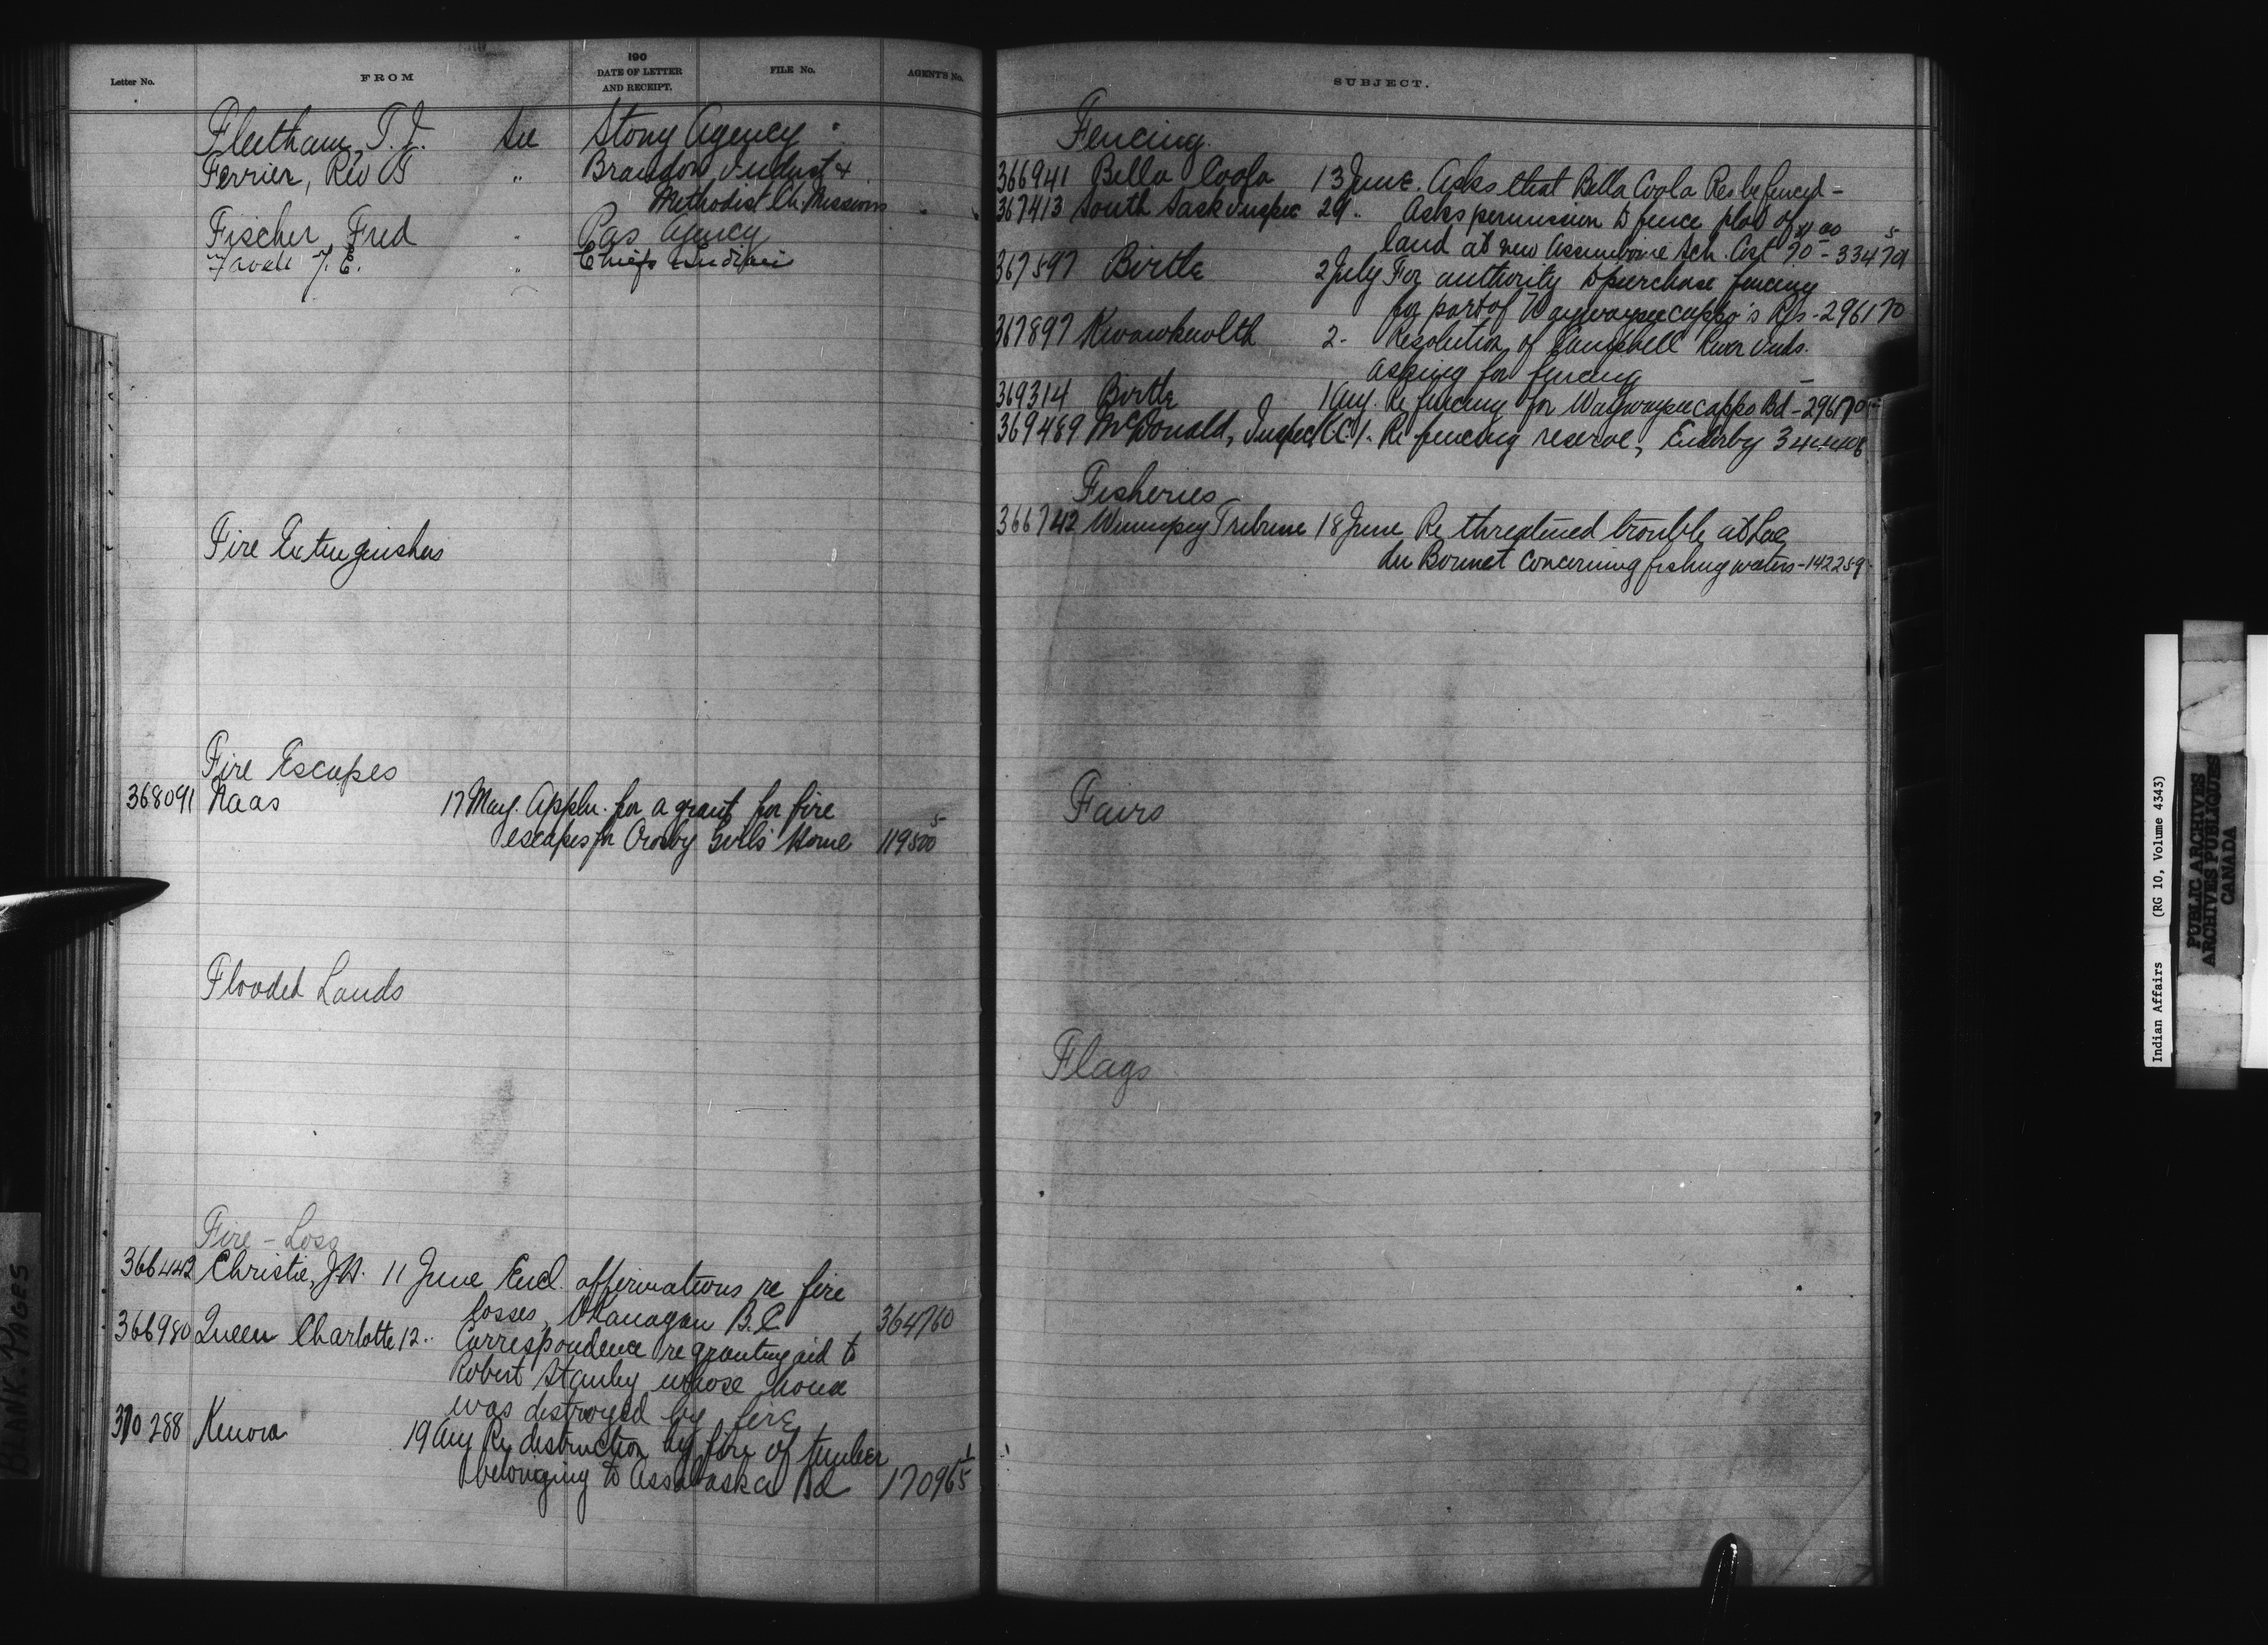 Letter No.
FROM
190
DATE OF LETTER
AND RECEIPT.
FILE No.
AGENT'S No.
Fleetham, T. J. See Stony Agency
Ferrier, Rev T " Brandon Indust &
Methodist Ch. Missions
Fischer, Fred " Pas Agency
J. E. " Chief Indian
Fire Extinguishers
Fire Escapes
368091 Naas 17 May. Appln. for a grant for fire
escapes for Crosby Girls' Home 119500 5
Flooded Lands
Fire - Loss
366442 Christie, J.H. 11 June Encl. affirmations re fire
losses, Okanagan B.C. 364760
366980 Queen Charlotte 12 " Correspondence re granting aid to
Robert Stanley whose house
was destroyed by fire
370288 Kenora 19 Aug Re destruction by fire of timber
belonging to Assabaska Bd 170965 1
SUBJECT.
Fencing
366941 Bella Coola 13 June. Asks that Bella Coola Res be fenced -
367413 South Sask Inspec 29 " Asks permission to fence plot of
land at new Assiniboine Sch. Cost 70 - 33479 5
367597 Birtle 2 July For authority to purchase fencing
for part of Waywayseecappo's Res - 296170
367897 Kwawkewlth 2 - Resolution of Campbell River Inds.
asking for fencing
369314 Birtle 1 Aug. Re fencing for Waywayseecappo Bd - 296170
369489 McDonald, Inspec K.C. 1 " Re fencing reserve, Enderby
Fisheries
366742 Winnipeg Tribune 18 June Re threatened trouble at Lac
du Bonnet concerning fishing waters - 142259
Fairs
Flags
BLANK PAGES
Indian Affairs (RG 10, Volume 4343)
PUBLIC ARCHIVES
ARCHIVES PUBLIQUES
CANADA